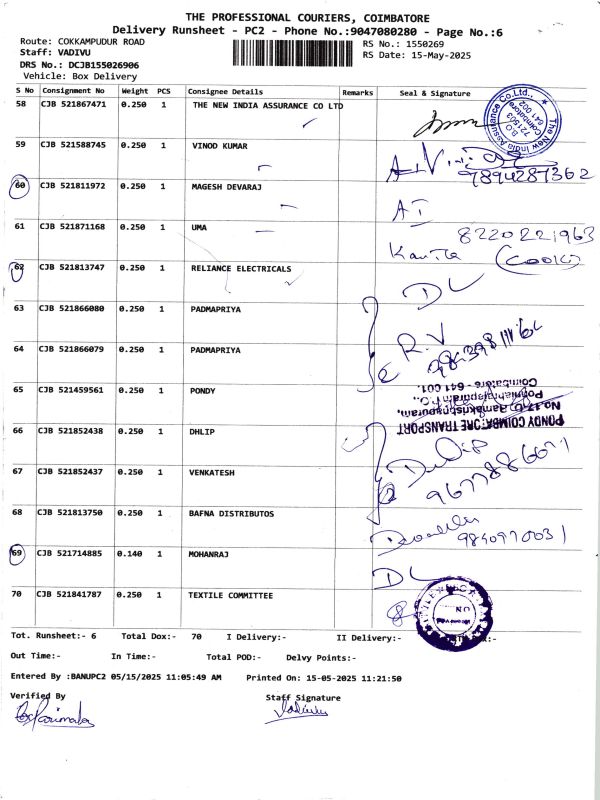 THE PROFESSIONAL COURIERS, COIMBATORE
Delivery Runsheet - PC2 - Phone No.:9047080280 - Page No.:6
Route: COKKAMPUDUR ROAD
RS No.: 1550269
Staff: VADIVU
RS Date: 15-May-2025
DRS No.: DCJB155026906
Vehicle: Box Delivery
S No Consignment No Weight PCS Consignee Details Remarks Seal & Signature
58 CJB 521867471 0.250 1 THE NEW INDIA ASSURANCE CO LTD
The New India Assurance Co.Ltd.,
B.O
721503
Coimbatore
641 002
59 CJB 521588745 0.250 1 VINOD KUMAR
9894287362
60 CJB 521811972 0.250 1 MAGESH DEVARAJ
61 CJB 521871168 0.250 1 UMA
8220221963
(COOK)
62 CJB 521813747 0.250 1 RELIANCE ELECTRICALS
DL
63 CJB 521866080 0.250 1 PADMAPRIYA
R.V
64 CJB 521866079 0.250 1 PADMAPRIYA
65 CJB 521459561 0.250 1 PONDY
PONDY COIMBATORE TRANSPORT
Coimbatore - 641 001.
66 CJB 521852438 0.250 1 DHLIP
Dulip
67 CJB 521852437 0.250 1 VENKATESH
68 CJB 521813750 0.250 1 BAFNA DISTRIBUTOS
9840970031
69 CJB 521714885 0.140 1 MOHANRAJ
DL
70 CJB 521841787 0.250 1 TEXTILE COMMITTEE
Tot. Runsheet:- 6 Total Dox:- 70 I Delivery:- II Delivery:-
Out Time:- In Time:- Total POD:- Delvy Points:-
Entered By :BANUPC2 05/15/2025 11:05:49 AM Printed On: 15-05-2025 11:21:50
Verified By Staff Signature